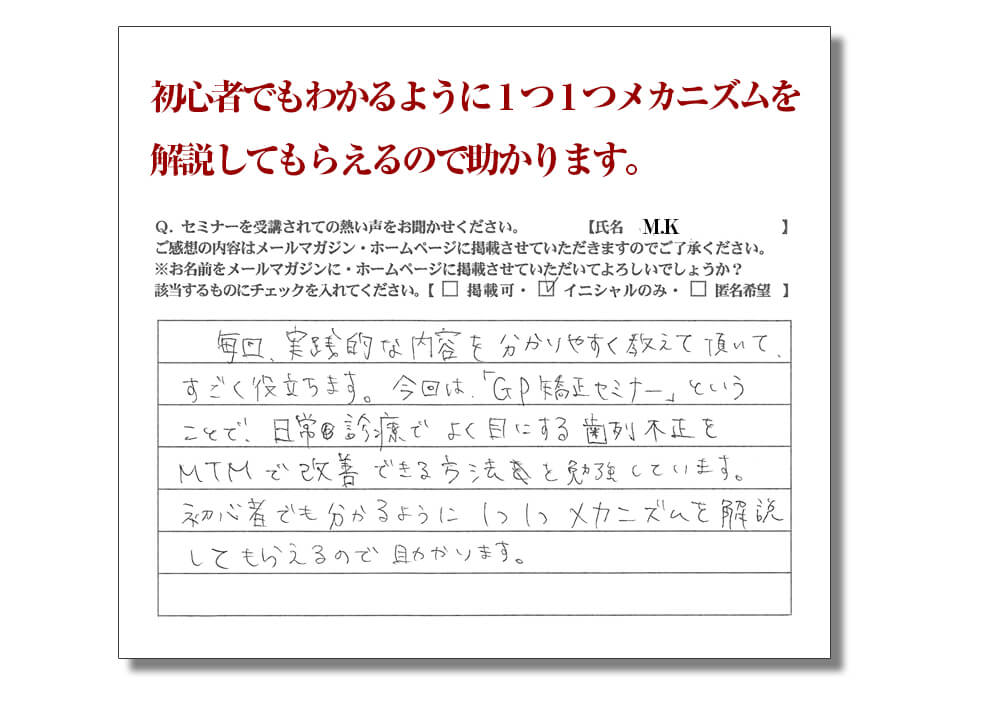 初心者でもわかるように１つ１つメカニズムを
解説してもらえるので助かります。
Q. セミナーを受講されての熱い声をお聞かせください。 【氏名 M.K 】
ご感想の内容はメールマガジン・ホームページに掲載させていただきますのでご了承ください。
※お名前をメールマガジンに・ホームページに掲載させていただいてよろしいでしょうか？
該当するものにチェックを入れてください。【 □ 掲載可・ ☑ イニシャルのみ・ □ 匿名希望 】
毎回、実践的な内容を分かりやすく教えて頂いて、
すごく役立ちます。今回は、「GP矯正セミナー」という
ことで、日常診療でよく目にする歯列不正を
MTMで改善できる方法を勉強しています。
初心者でも分かるように1つ1つメカニズムを解説
してもらえるので助かります。